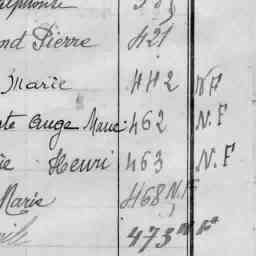 nd Pierre 421
Marie 442 N.F
te Ange Marie 462 N.F
ie Henri 463 N.F
Marie 468 N.F
473